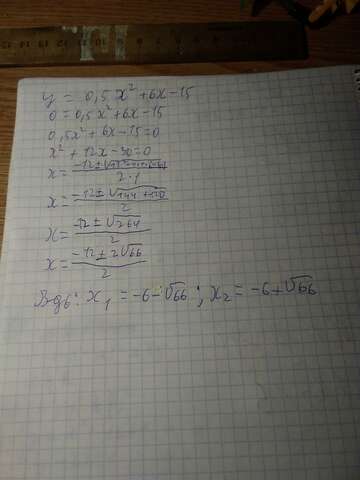 y = 0,5x² + 6x - 15
0 = 0,5x² + 6x - 15
0,5x² + 6x - 15 = 0
x² + 12x - 30 = 0
x = (-12 ± √(12² - 4·1·(-30))) / (2·1)
x = (-12 ± √(144 + 120)) / 2
x = (-12 ± √264) / 2
x = (-12 ± 2√66) / 2
x₁ = -6 - √66 ; x₂ = -6 + √66